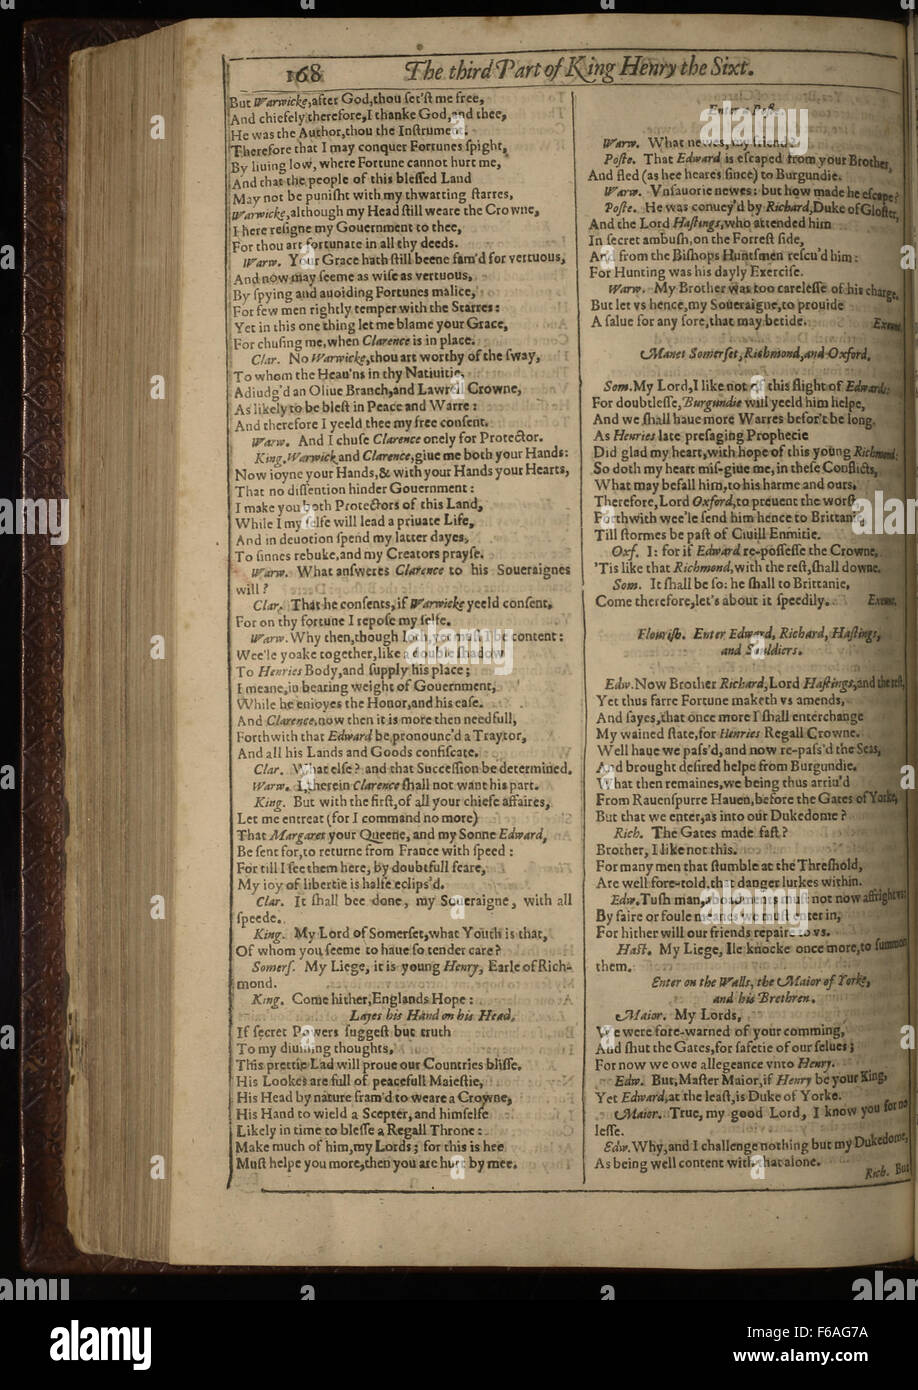 168
The third Part of King Henry the Sixt.
But Warwicke, after God, thou ſet'ſt me free,
And chiefely therefore, I thanke God, and thee,
He was the Author, thou the Inſtrument.
Therefore that I may conquer Fortunes ſpight,
By liuing low, where Fortune cannot hurt me,
And that the people of this bleſſed Land
May not be puniſht with my thwarting ſtarres,
Warwicke, although my Head ſtill weare the Crowne,
I here reſigne my Gouernment to thee,
For thou art fortunate in all thy deeds.
Warw. Your Grace hath ſtill beene fam'd for vertuous,
And now may ſeeme as wiſe as vertuous,
By ſpying and auoiding Fortunes malice,
For few men rightly temper with the Starres:
Yet in this one thing let me blame your Grace,
For chuſing me, when Clarence is in place.
Clar. No Warwicke, thou art worthy of the ſway,
To whom the Heau'ns in thy Natiuitie,
Adiudg'd an Oliue Branch, and Lawrell Crowne,
As likely to be bleſt in Peace and Warre:
And therefore I yeeld thee my free conſent.
Warw. And I chuſe Clarence onely for Protector.
King. Warwick and Clarence, giue me both your Hands:
Now ioyne your Hands, & with your Hands your Hearts,
That no diſſention hinder Gouernment:
I make you both Protectors of this Land,
While I my ſelfe will lead a priuate Life,
And in deuotion ſpend my latter dayes,
To ſinnes rebuke, and my Creators prayſe.
Warw. What anſweres Clarence to his Soueraignes
will?
Clar. That he conſents, if Warwicke yeeld conſent,
For on thy fortune I repoſe my ſelfe.
Warw. Why then, though loth, yet muſt I be content:
Wee'le yoake together, like a double ſhadow
To Henries Body, and ſupply his place;
I meane, in bearing weight of Gouernment,
While he enioyes the Honor, and his eaſe.
And Clarence, now then it is more then needfull,
Forthwith that Edward be pronounc'd a Traytor,
And all his Lands and Goods confiſcate.
Clar. What elſe? and that Succeſſion be determined.
Warw. I, therein Clarence ſhall not want his part.
King. But with the firſt, of all your chiefe affaires,
Let me entreat (for I command no more)
That Margaret your Queene, and my Sonne Edward,
Be ſent for, to returne from France with ſpeed:
For till I ſee them here, by doubtfull feare,
My ioy of libertie is halfe eclips'd.
Clar. It ſhall bee done, my Soueraigne, with all
ſpeede.
King. My Lord of Somerſet, what Youth is that,
Of whom you ſeeme to haue ſo tender care?
Somerſ. My Liege, it is young Henry, Earle of Rich-
mond.
King. Come hither, Englands Hope:
Layes his Hand on his Head,
If ſecret Powers ſuggeſt but truth
To my diuining thoughts,
This prettie Lad will proue our Countries bliſſe.
His Lookes are full of peacefull Maieſtie,
His Head by nature fram'd to weare a Crowne,
His Hand to wield a Scepter, and himſelfe
Likely in time to bleſſe a Regall Throne:
Make much of him, my Lords; for this is hee
Muſt helpe you more, then you are hurt by mee.
Enter a Poſte.
Warw. What newes, my friend?
Poſte. That Edward is eſcaped from your Brother,
And fled (as hee heares ſince) to Burgundie.
Warw. Vnſauorie newes: but how made he eſcape?
Poſte. He was conuey'd by Richard, Duke of Gloſter,
And the Lord Haſtings, who attended him
In ſecret ambuſh, on the Forreſt ſide,
And from the Biſhops Huntſmen reſcu'd him:
For Hunting was his dayly Exerciſe.
Warw. My Brother was too careleſſe of his charge.
But let vs hence, my Soueraigne, to prouide
A ſalue for any ſore, that may betide. Exeunt.
Manet Somerſet, Richmond, and Oxford.
Som. My Lord, I like not of this flight of Edwards:
For doubtleſſe, Burgundie will yeeld him helpe,
And we ſhall haue more Warres befor't be long.
As Henries late preſaging Prophecie
Did glad my heart, with hope of this young Richmond:
So doth my heart miſ-giue me, in theſe Conflicts,
What may befall him, to his harme and ours.
Therefore, Lord Oxford, to preuent the worſt,
Forthwith wee'le ſend him hence to Brittanie,
Till ſtormes be paſt of Ciuill Enmitie.
Oxf. I: for if Edward re-poſſeſſe the Crowne,
'Tis like that Richmond, with the reſt, ſhall downe.
Som. It ſhall be ſo: he ſhall to Brittanie,
Come therefore, let's about it ſpeedily. Exeunt.
Flouriſh. Enter Edward, Richard, Haſtings,
and Souldiers.
Edw. Now Brother Richard, Lord Haſtings, and the reſt,
Yet thus farre Fortune maketh vs amends,
And ſayes, that once more I ſhall enterchange
My wained ſtate, for Henries Regall Crowne.
Well haue we paſs'd, and now re-paſs'd the Seas,
And brought deſired helpe from Burgundie.
What then remaines, we being thus arriu'd
From Rauenſpurre Hauen, before the Gates of Yorke,
But that we enter, as into our Dukedome?
Rich. The Gates made faſt?
Brother, I like not this.
For many men that ſtumble at the Threſhold,
Are well fore-told, that danger lurkes within.
Edw. Tuſh man, aboadments muſt not now affright vs:
By faire or foule meanes we muſt enter in,
For hither will our friends repaire to vs.
Haſt. My Liege, Ile knocke once more, to ſummon
them.
Enter on the Walls, the Maior of Yorke,
and his Brethren.
Maior. My Lords,
We were fore-warned of your comming,
And ſhut the Gates, for ſafetie of our ſelues;
For now we owe allegeance vnto Henry.
Edw. But, Maſter Maior, if Henry be your King,
Yet Edward, at the leaſt, is Duke of Yorke.
Maior. True, my good Lord, I know you for no
leſſe.
Edw. Why, and I challenge nothing but my Dukedome,
As being well content with that alone.
Rich. But
alamy
Image ID: F6AG7A
www.alamy.com